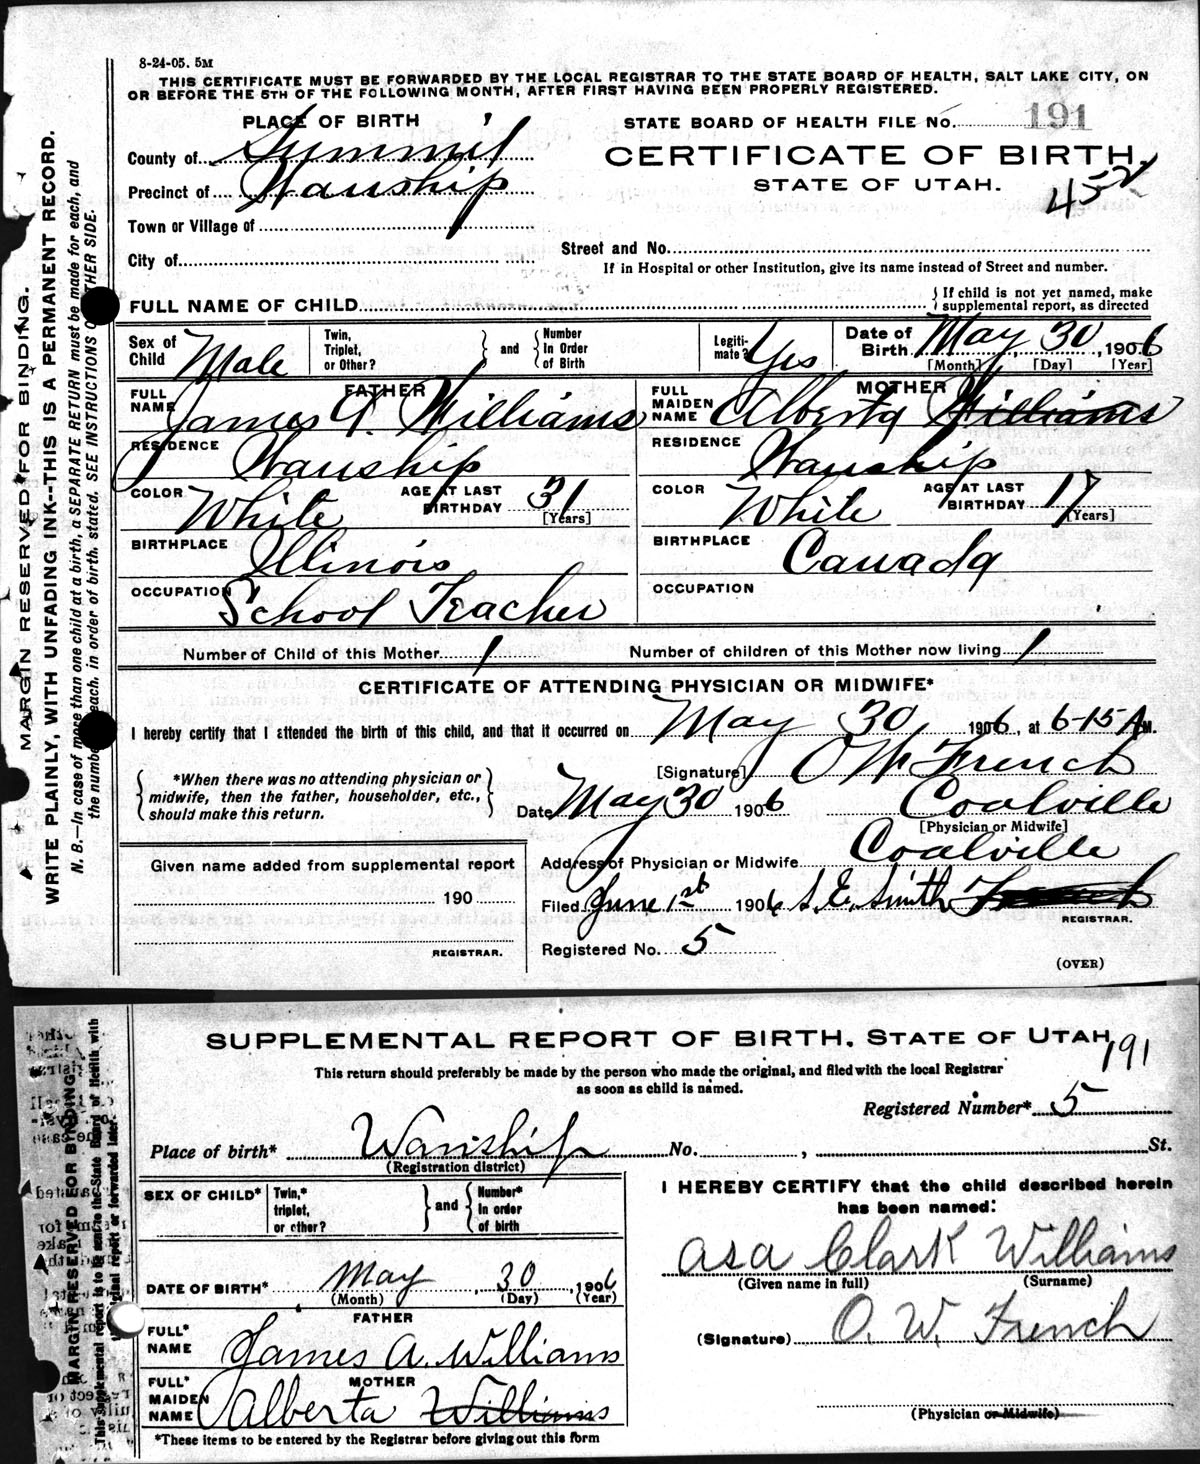 8-24-05. 5M
THIS CERTIFICATE MUST BE FORWARDED BY THE LOCAL REGISTRAR TO THE STATE BOARD OF HEALTH, SALT LAKE CITY, ON
OR BEFORE THE 5TH OF THE FOLLOWING MONTH, AFTER FIRST HAVING BEEN PROPERLY REGISTERED.
PLACE OF BIRTH
STATE BOARD OF HEALTH FILE No. 191
County of Summit
CERTIFICATE OF BIRTH.
Precinct of Wanship
STATE OF UTAH.
452
Town or Village of
Street and No.
City of
If in Hospital or other Institution, give its name instead of Street and number.
FULL NAME OF CHILD
If child is not yet named, make
supplemental report, as directed
Sex of Child Male
Twin, Triplet, or Other?
and
Number In Order of Birth
Legiti-mate? Yes
Date of Birth May 30, 1906
[Month] [Day] [Year]
FATHER
FULL NAME James A. Williams
MOTHER
FULL MAIDEN NAME Alberta Williams
RESIDENCE Wanship
RESIDENCE Wanship
COLOR White AGE AT LAST BIRTHDAY 31 [Years]
COLOR White AGE AT LAST BIRTHDAY 17 [Years]
BIRTHPLACE Illinois
BIRTHPLACE Canada
OCCUPATION School Teacher
OCCUPATION
Number of Child of this Mother 1
Number of children of this Mother now living 1
CERTIFICATE OF ATTENDING PHYSICIAN OR MIDWIFE*
I hereby certify that I attended the birth of this child, and that it occurred on May 30, 1906, at 6-15 A M.
*When there was no attending physician or
midwife, then the father, householder, etc.,
should make this return.
[Signature] O W French
Date May 30 1906 Coalville
[Physician or Midwife]
Address of Physician or Midwife Coalville
Given name added from supplemental report
190
REGISTRAR.
Filed June 1st 1906 S. E. Smith
REGISTRAR.
Registered No. 5
(OVER)
MARGIN RESERVED FOR BINDING.
WRITE PLAINLY, WITH UNFADING INK--THIS IS A PERMANENT RECORD.
N. B.—In case of more than one child at a birth, a SEPARATE RETURN must be made for each, and
the number each, in order of birth, stated. SEE INSTRUCTIONS OTHER SIDE.
SUPPLEMENTAL REPORT OF BIRTH, STATE OF UTAH
191
This return should preferably be made by the person who made the original, and filed with the local Registrar
as soon as child is named.
Registered Number* 5
Place of birth* Wanship No. , St.
(Registration district)
SEX OF CHILD*
Twin,* triplet, or other?
and
Number* In order of birth
I HEREBY CERTIFY that the child described herein
has been named:
Asa Clark Williams
(Given name in full) (Surname)
DATE OF BIRTH* May 30, 1906
(Month) (Day) (Year)
FATHER
FULL* NAME James A. Williams
(Signature) O. W. French
MOTHER
FULL* MAIDEN NAME Alberta Williams
(Physician or Midwife)
*These items to be entered by the Registrar before giving out this form
MARGIN RESERVED FOR BINDING
This supplemental report is to be sent to the State Board of Health with
original report or forwarded later.